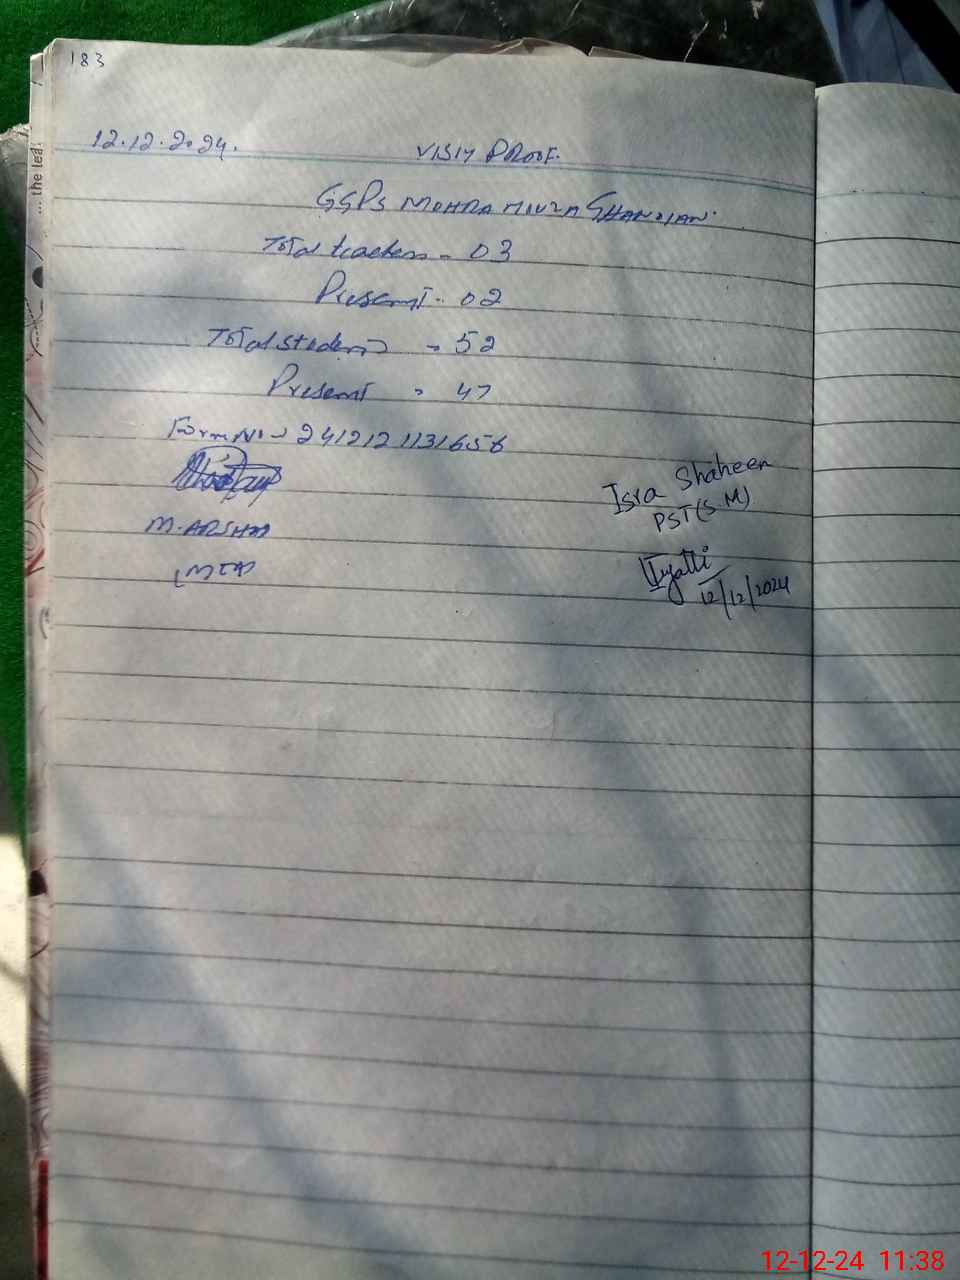 183
... the led
12.12.2024. VISIT PROOF.
GGPS MOHRA MIRZA SHANDIAN.
Total teachers - 03
Present - 02
Total students - 52
Present - 47
Form No - 241212 1131656
M. ARSHAD
Isra Shaheen
PST (S.M)
12/12/2024
12-12-24 11:38